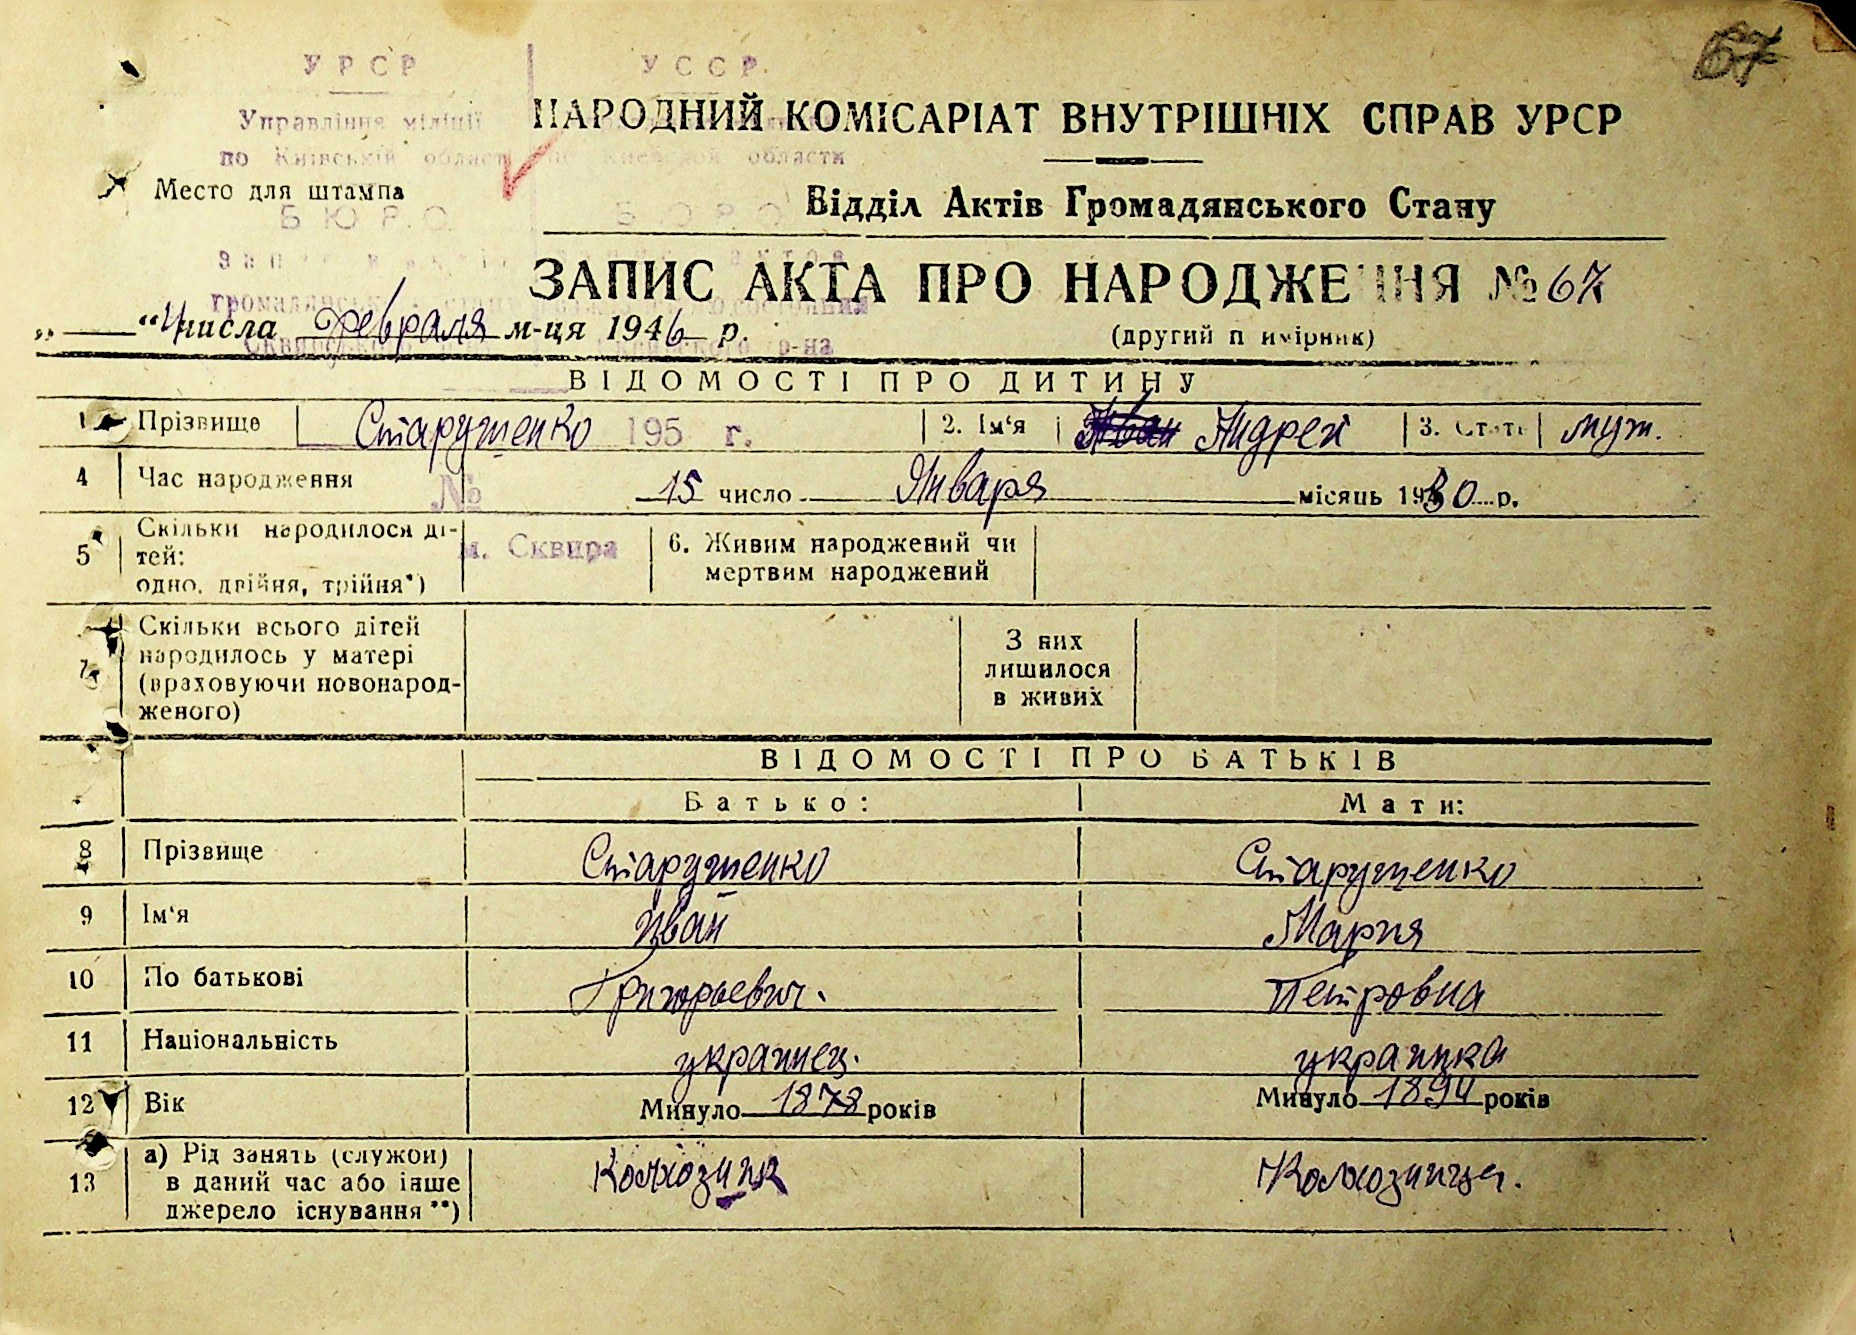 67
УРСР УССР
НАРОДНИЙ КОМІСАРІАТ ВНУТРІШНІХ СПРАВ УРСР
Управління міліції
по Київській област по Киевской области
Место для штампа
Відділ Актів Громадянського Стану
БЮРО БЮРО
ЗАПИС АКТА ПРО НАРОДЖЕННЯ № 67
„ “ 4 числа февраля м-ця 1946 р.
(другий п имірник)
р-на
ВІДОМОСТІ ПРО ДИТИНУ
1 Прізвище Старушенко 195 г. 2. Ім‘я Иван Андрей 3. Стать муж.
4 Час народження № 15 число Января місяць 1930 р.
5 Скільки народилося ді-
тей:
одно, двійня, трійня*)
м. Сквира
6. Живим народжений чи
мертвим народжений
7 Скільки всього дітей
народилось у матері
(враховуючи новонарод-
женого)
З них
лишилося
в живих
ВІДОМОСТІ ПРО БАТЬКІВ
Батько: Мати:
8 Прізвище Старушенко Старушенко
9 Ім‘я Иван Мария
10 По батькові Григорьевич. Петровна
11 Національність украинец. украинка
12 Вік Минуло 1878 років Минуло 1894 років
13 а) Рід занять (служби)
в даний час або інше
джерело існування **)
Колхозник Колхозница.